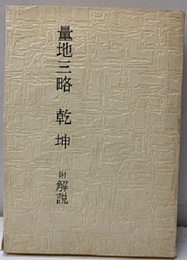 量地三略 乾坤
附 解説